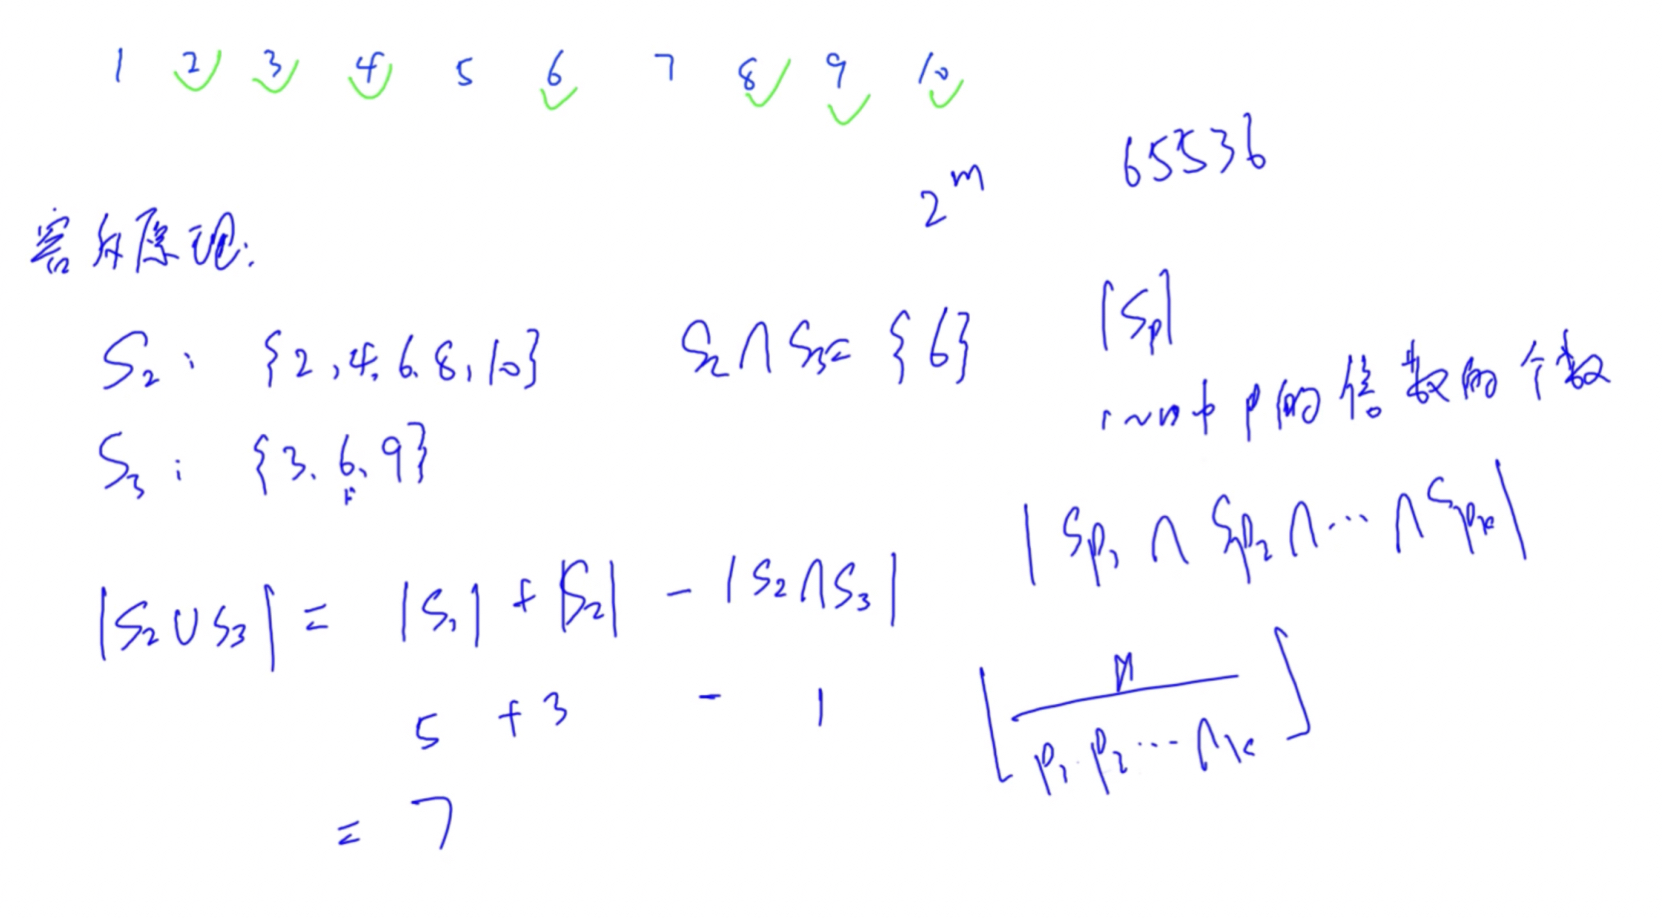 1 2 3 4 5 6 7 8 9 10
2^m 65536
容斥原理:
S₂: {2,4.6.8,10} S₂∩S₃= {6} |Sₚ|
1~n中p的倍数的个数
S₃: {3.6、9}
|Sp₁ ∩ Sp₂ ∩ ... ∩ Spₖ|
|S₂∪S₃| = |S₁| + |S₂| - |S₂∩S₃|
5 + 3 - 1
[n / p₁·p₂...pₖ]
= 7